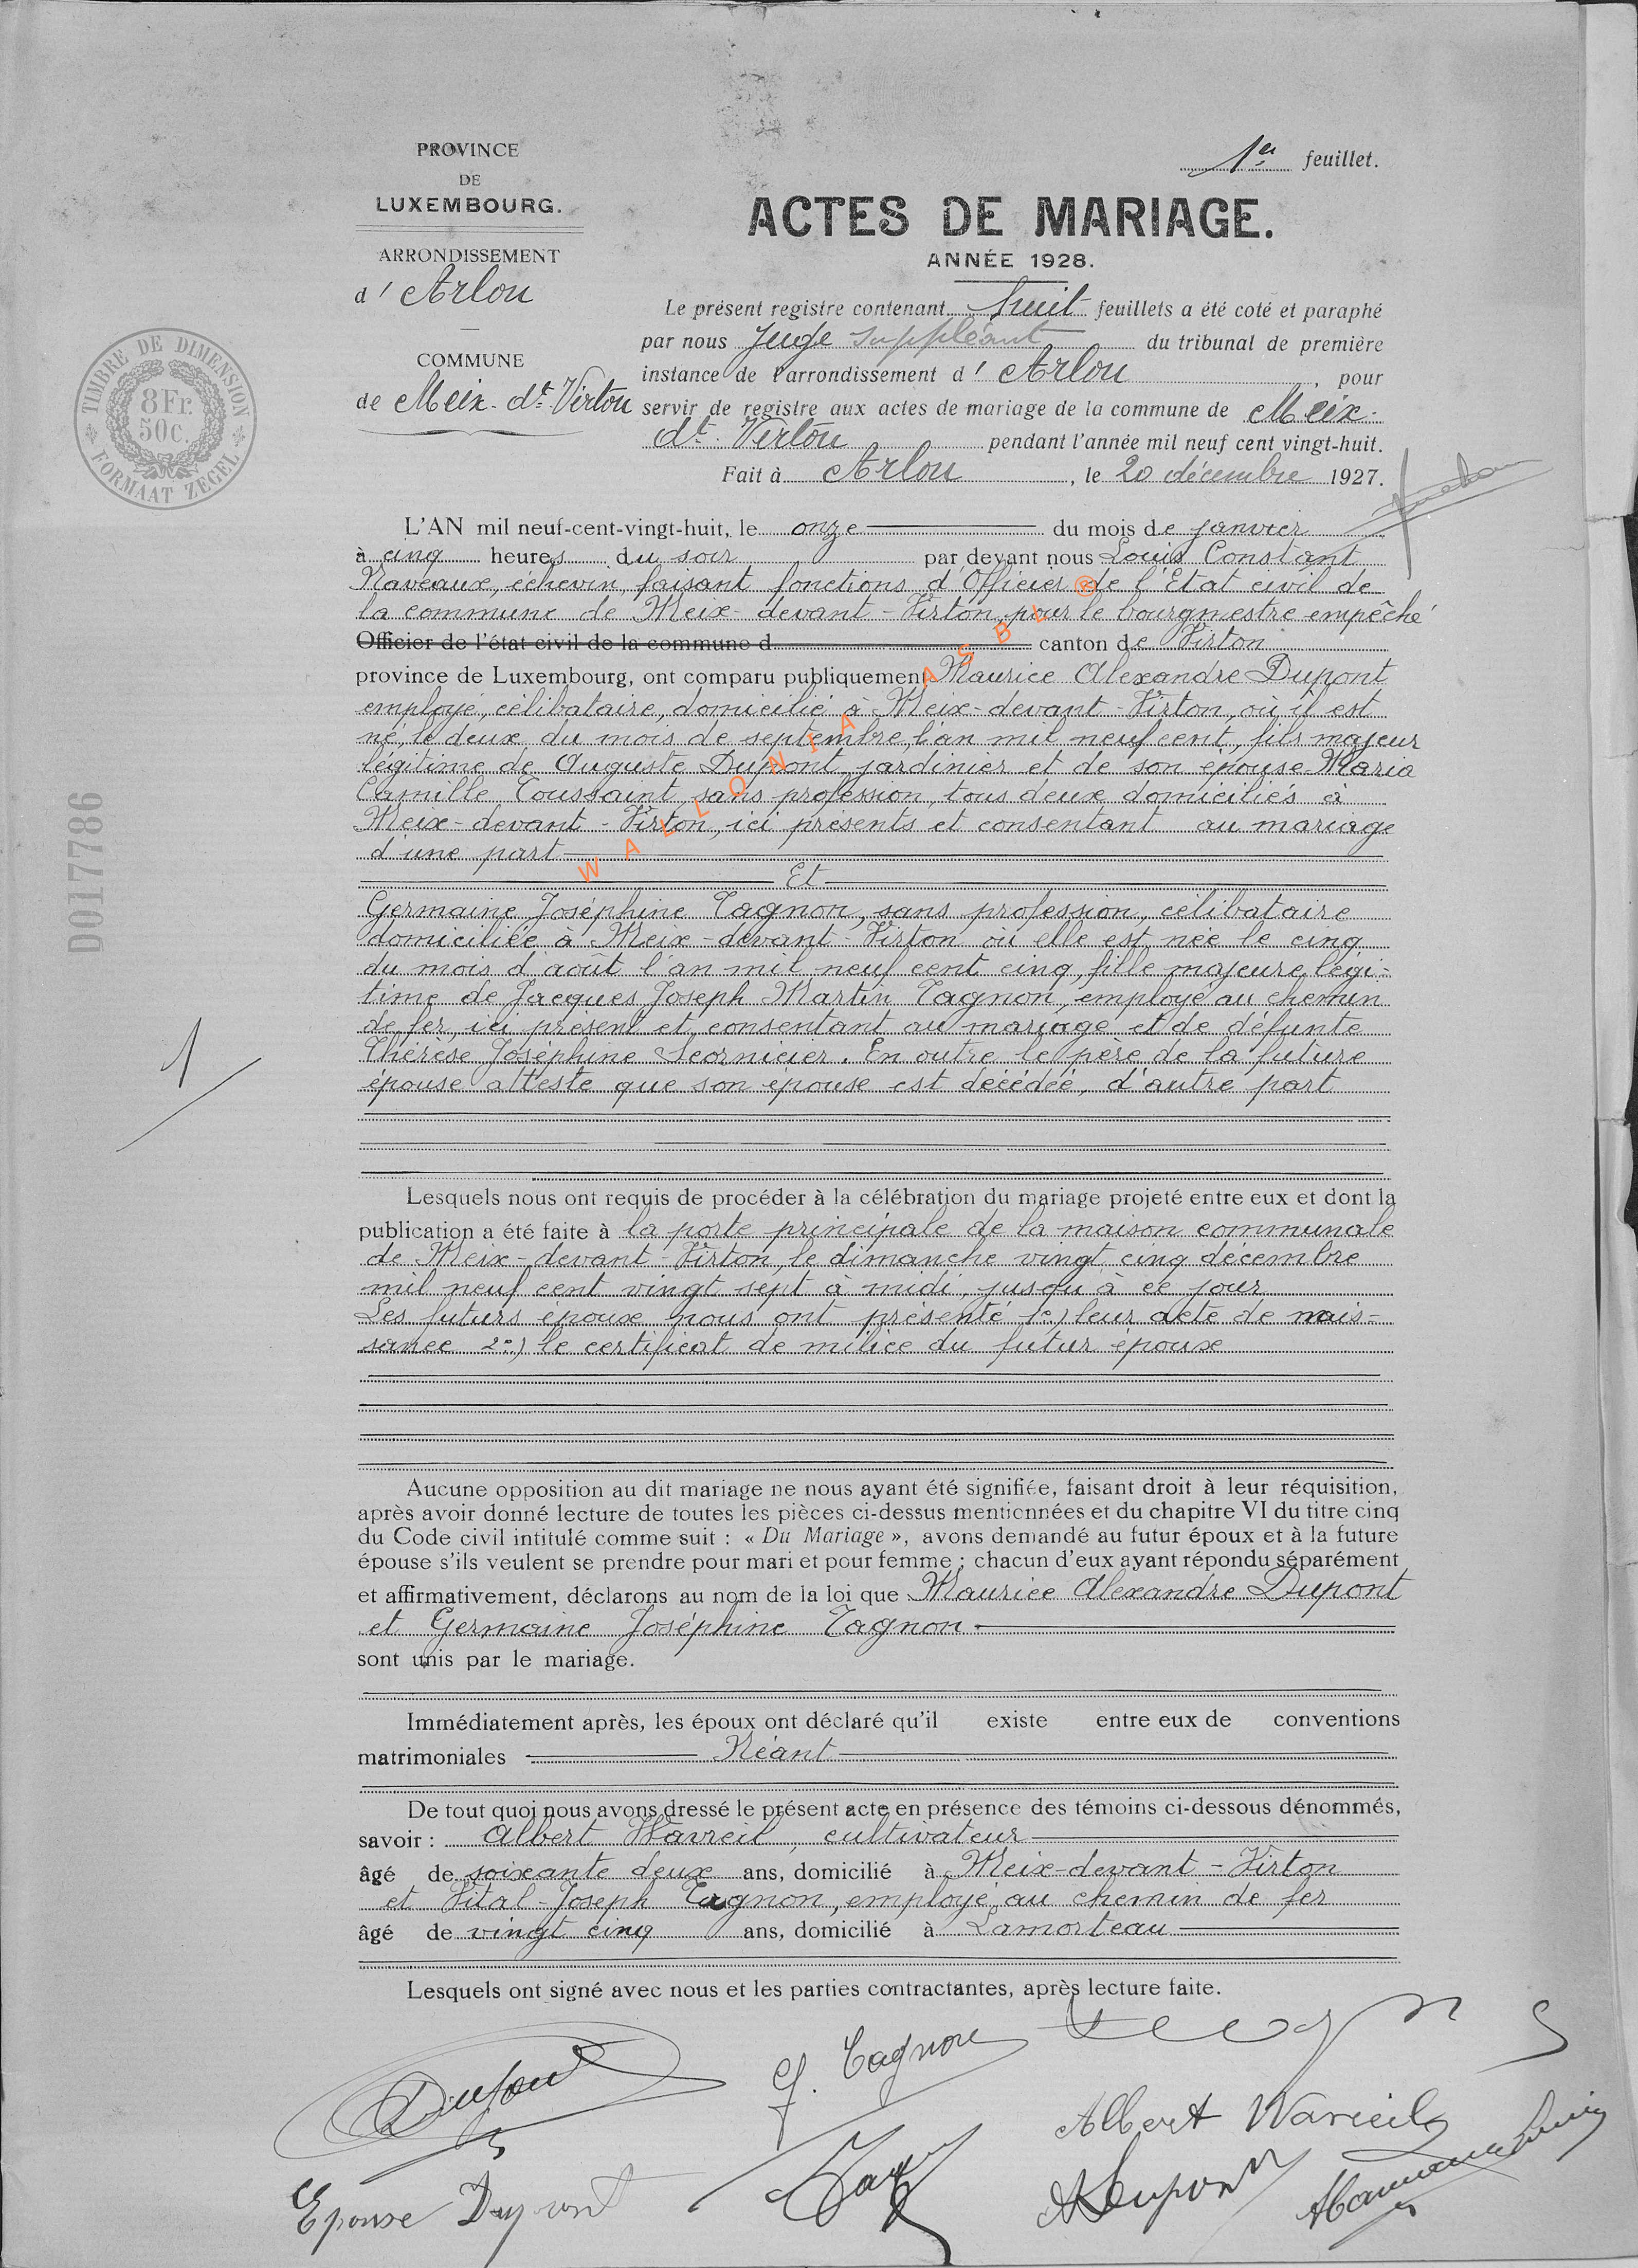 PROVINCE
DE
LUXEMBOURG.
ARRONDISSEMENT
d' Arlon
COMMUNE
de Meix-dt-Virton
TIMBRE DE DIMENSION
8 Fr.
50c.
FORMAAT ZEGEL
D017786
1er feuillet.
ACTES DE MARIAGE.
ANNÉE 1928.
Le présent registre contenant huit feuillets a été coté et paraphé
par nous Juge suppléant du tribunal de première
instance de l'arrondissement d' Arlon, pour
servir de registre aux actes de mariage de la commune de Meix-
dt-Virton pendant l'année mil neuf cent vingt-huit.
Fait à Arlon, le 20 décembre 1927.
L'AN mil neuf-cent-vingt-huit, le onze du mois de janvier
à cinq heures du soir par devant nous Louis Constant
Naveaux, échevin, faisant fonctions d'Officier de l'Etat civil de
la commune de Meix-devant-Virton, pour le bourgmestre empêché
Officier de l'état civil de la commune d canton de Virton
province de Luxembourg, ont comparu publiquement Maurice Alexandre Dupont
employé, célibataire, domicilié à Meix-devant-Virton, où il est
né, le deux du mois de septembre, l'an mil neuf cent, fils majeur
légitime de Auguste Dupont, jardinier et de son épouse Maria
Camille Toussaint, sans profession, tous deux domiciliés à
Meix-devant-Virton, ici présents et consentant au mariage
d'une part
Et
Germaine Joséphine Tagnon, sans profession, célibataire
domiciliée à Meix-devant-Virton où elle est née le cinq
du mois d'août l'an mil neuf cent cinq, fille majeure légi-
time de Jacques Joseph Martin Tagnon, employé au chemin
de fer, ici présent et consentant au mariage et de défunte
Thérèse Joséphine Scornicier. En outre le père de la future
épouse atteste que son épouse est décédée, d'autre part
1
Lesquels nous ont requis de procéder à la célébration du mariage projeté entre eux et dont la
publication a été faite à la porte principale de la maison communale
de Meix-devant-Virton, le dimanche vingt cinq décembre
mil neuf cent vingt sept à midi, jusqu'à ce jour
Les futurs époux nous ont présenté 1e) leur acte de nais-
sance 2e) le certificat de milice du futur époux
Aucune opposition au dit mariage ne nous ayant été signifiée, faisant droit à leur réquisition,
après avoir donné lecture de toutes les pièces ci-dessus mentionnées et du chapitre VI du titre cinq
du Code civil intitulé comme suit : « Du Mariage », avons demandé au futur époux et à la future
épouse s'ils veulent se prendre pour mari et pour femme ; chacun d'eux ayant répondu séparément
et affirmativement, déclarons au nom de la loi que Maurice Alexandre Dupont
et Germaine Joséphine Tagnon
sont unis par le mariage.
Immédiatement après, les époux ont déclaré qu'il existe entre eux de conventions
matrimoniales Néant
De tout quoi nous avons dressé le présent acte en présence des témoins ci-dessous dénommés,
savoir : Albert Wavreil, cultivateur
âgé de soixante deux ans, domicilié à Meix-devant-Virton
et Vital-Joseph Tagnon, employé au chemin de fer
âgé de vingt cinq ans, domicilié à Lamorteau
Lesquels ont signé avec nous et les parties contractantes, après lecture faite.
Dupont
G. Tagnon
Albert Wavreil
Epouse Dupont
A Dupont
WALLONIA ASBL ®